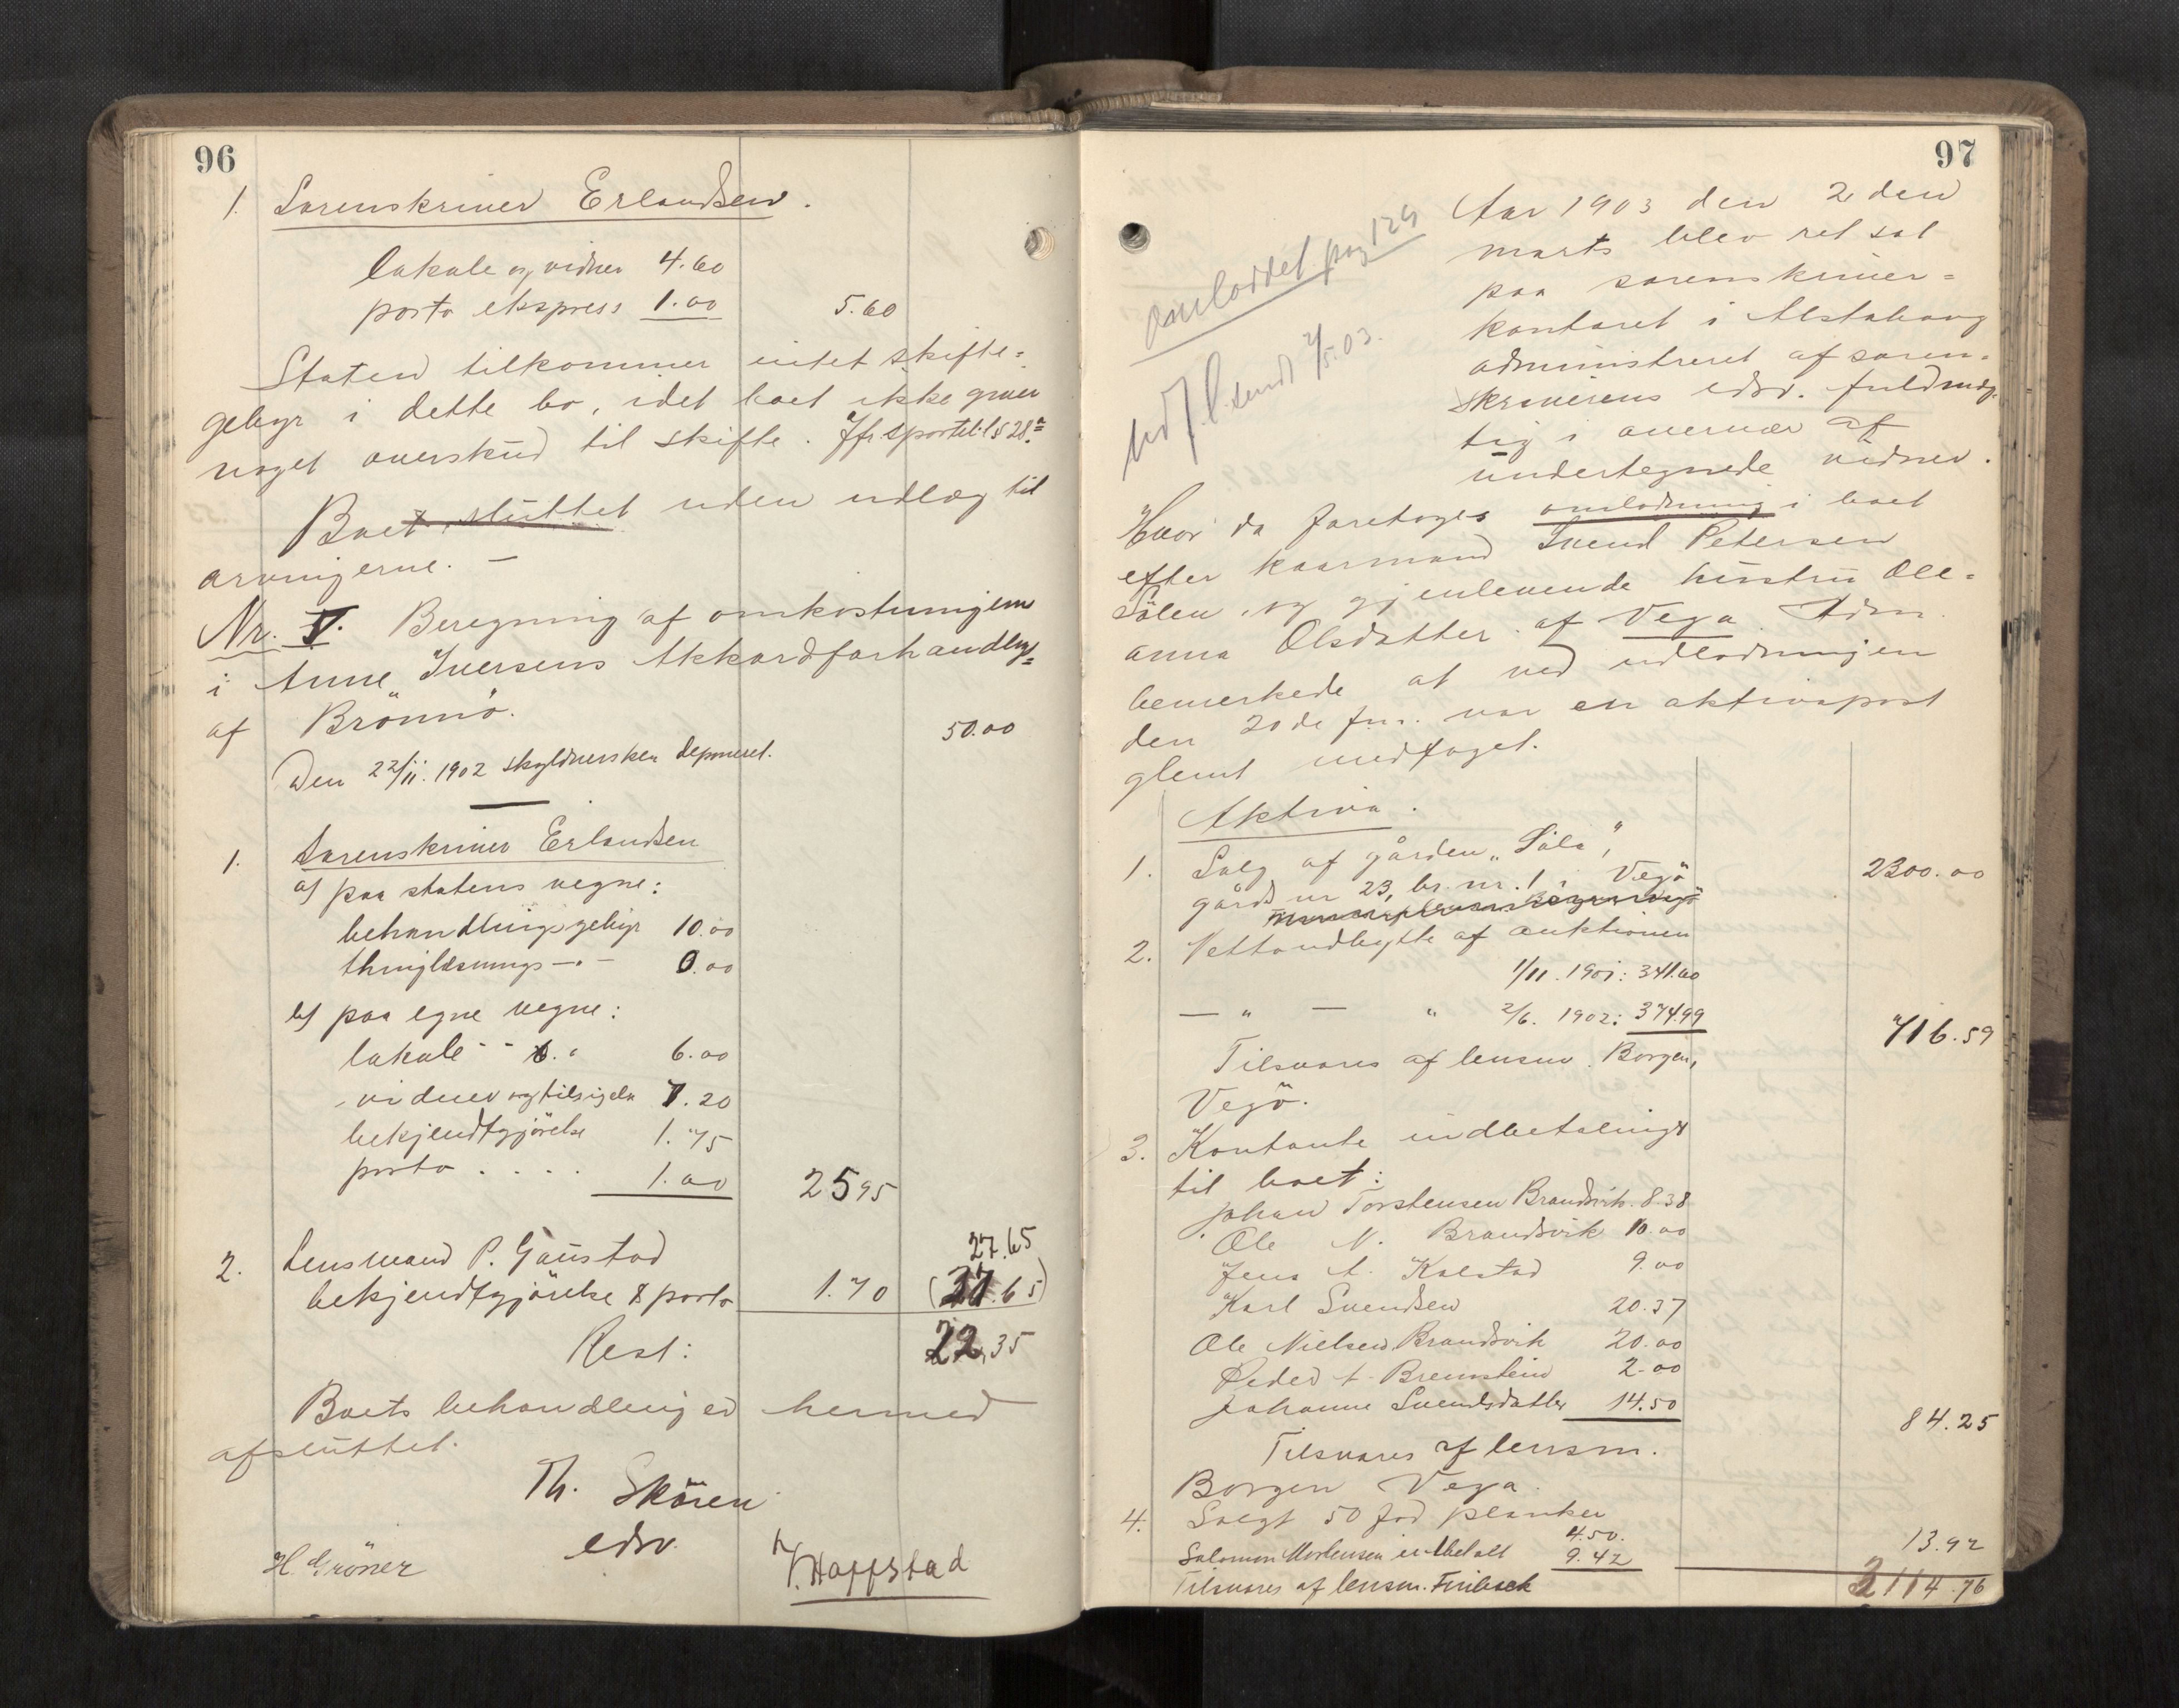 96
1. Sorenskriver Erlandsen.
lokale og vidner 4.60
porto ekspress 1.00 5.60
Staten tilkommer intet skifte-
gebyr i dette bo, idet boet ikke giver
noget overskud til skifte. Jfr. sportel.l § 28.
Boet sluttet uden udlæg til
arvingerne. —
Nr. V. Beregning af omkostningerne
i Anne Iversens Akkordforhandling
af Brønnö.
Den 22/11. 1902 skyldnersken deponeret. 50.00
1. Sorenskriver Erlandsen
a) paa statens vegne:
behandlingsgebyr 10.00
thinglæsnings —"— 0.00
b) paa egne vegne:
lokale 6.00
vidner og tilsigeln 7.20
bekjendtgjörelse 1.75
porto . . . . 1.00 25 95
2. Lensmand P. Gaustad 27.65
bekjendtgjörelse & porto 1.70 (27.65)
Rest: 22,35
Boets behandling er hermed
afsluttet.
Th. Skören
edsv.
H. Gröner
V. Hoffstad
97
omloddet pag 129
sendt 2/5.03.
Aar 1903 den 2 den
marts blev ret sat
paa sorenskriver-
kontoret i Alstahaug
administreret af soren-
skriverens edsv. fuldmæg-
tig i overvær af
undertegnede vidner.
Hvor da foretoges omlodning i boet
efter kaarmand Svend Petersen
Sölen og gjenlevende hustru Ole-
anna Olsdatter af Vega. Adm.
bemerkede at ved udlodningen
den 20de fm. var en aktivapost
glemt medtaget.
Aktiva.
1. Salg af gården "Söla",
gårds nr 23, br. nr. 1 i Vegö 2300.00
2. Nettoudbytte af auktionen
1/11. 1901: 341.60
— " — " 2/6. 1902: 374.99 716.59
Tilsvares af lensm. Borgen,
Vegö.
3. Kontante indbetalinger
til boet:
Johan Torstensen Brandsvik. 8.38
Ole N. Brandsvik 10.00
Jens A. Kalstad 9.00
Karl Svendsen 20.37
Ole Nielsen Brandsvik 20.00
Peder A. Bremstein 2.00
Johanne Svendsdatter 14.50 84.25
Tilsvares af lensm.
Borgen Vega.
4. Solgt 50 fod planker 4.50.
Salomon Mortensen indbetalt 9.42 13.92
Tilsvares af lensm. 3114.76